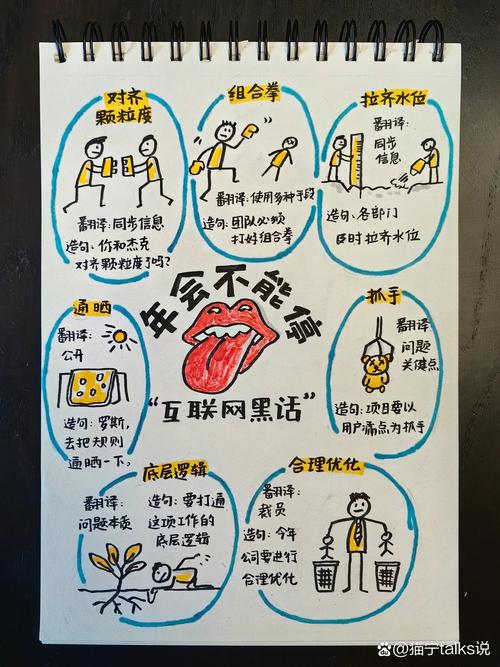 对齐
颗粒度
翻译:同步信息
造句:你和杰克
对齐颗粒度了吗?
组合拳
翻译:使用多种手段
造句:团队必须
打好组合拳
拉齐水位
翻译:
同步
信息
造句:各部门
及时拉齐水位
年会不能停
“互联网黑话”
通晒
翻译:
公开
造句:罗斯,
去把规则
通晒一下。
抓手
翻译
问题
关键点
造句:项目要以
用户痛点为抓手
底层逻辑
翻译:
问题本质
造句:要打通
这项工作的
底层逻辑
合理优化
翻译:
裁员
造句:今年
公司要进行
合理优化
@猫宁talks说